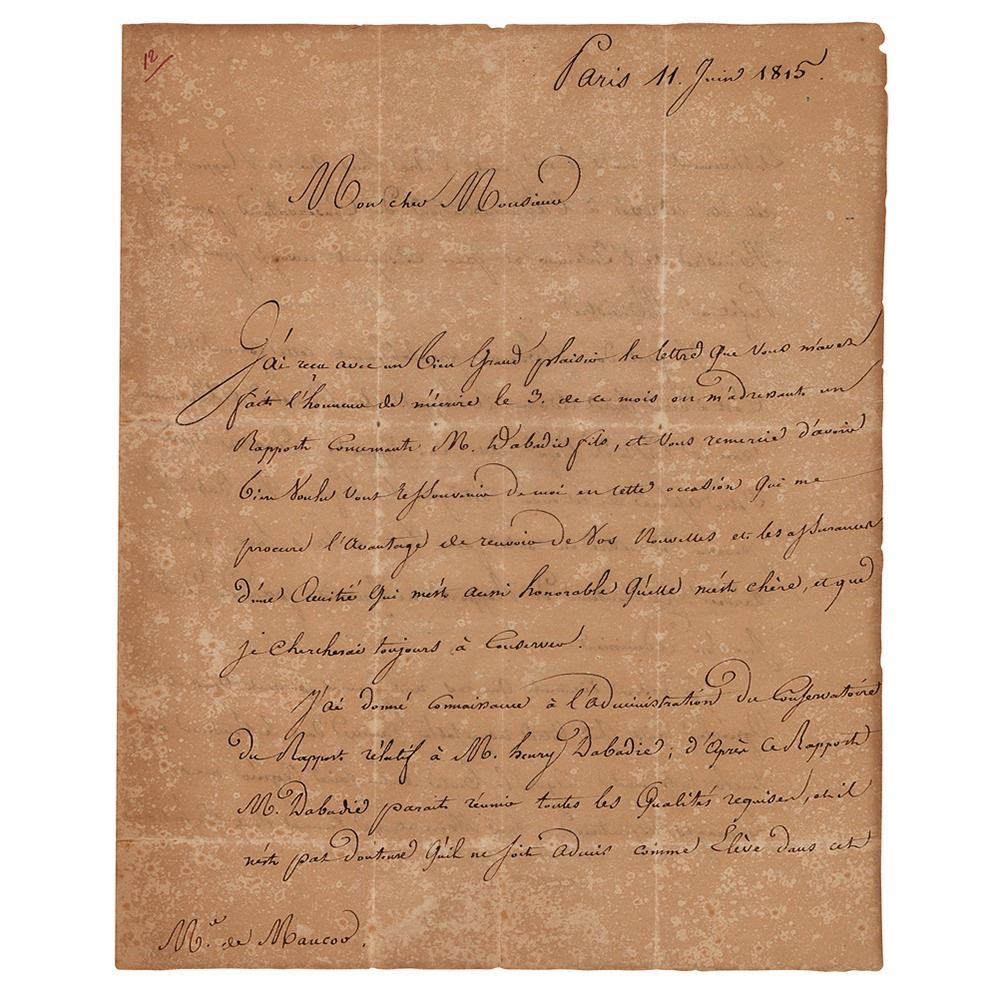 12
Paris 11. Juin 1815.
Mon cher Monsieur
J'ai reçu avec un bien Grand plaisir la lettre que Vous m'avez
fait l'honneur de m'écrire le 3. de ce mois en m'adressant un
Rapport Concernant M. Dabadie fils, et Vous remercie d'avoir
bien Voulu Vous ressouvenir de moi en cette occasion qui me
procure l'avantage de revoir de Vos Nouvelles et les assurances
d'une Amitié qui m'est aussi honorable Qu'elle m'est chère, et que
je chercherai toujours à Conserver.
J'ai donné connaissance à l'administration du Conservatoire
du Rapport rélatif à M. henry Dabadie; d'après ce Rapport
M. Dabadie parait réunir toutes les Qualités requises, et il
n'est pas douteux Qu'il ne soit admis comme Elève dans cet
M. de Maucor.